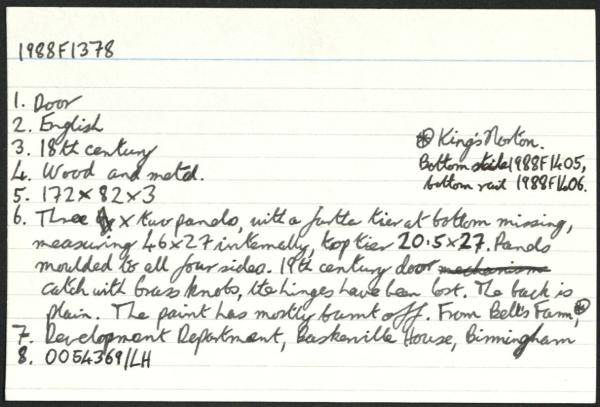 1988F1378
1. Door
2. English
3. 18th century
4. Wood and metal.
5. 172 x 82 x 3
⊛ King's Norton.
Bottom stile 1988F1405,
bottom rail 1988F1406.
6. Three x two panels, with a further tier at bottom missing,
measuring 46 x 27 internally, top tier 20.5 x 27. Panels
moulded to all four sides. 19th century door mechanisms
catch with brass knobs, the hinges have been lost. The back is
plain. The paint has mostly burnt off. From Bell's Farm, ⊛
7. Development Department, Baskerville House, Birmingham
8. 0054369/LH